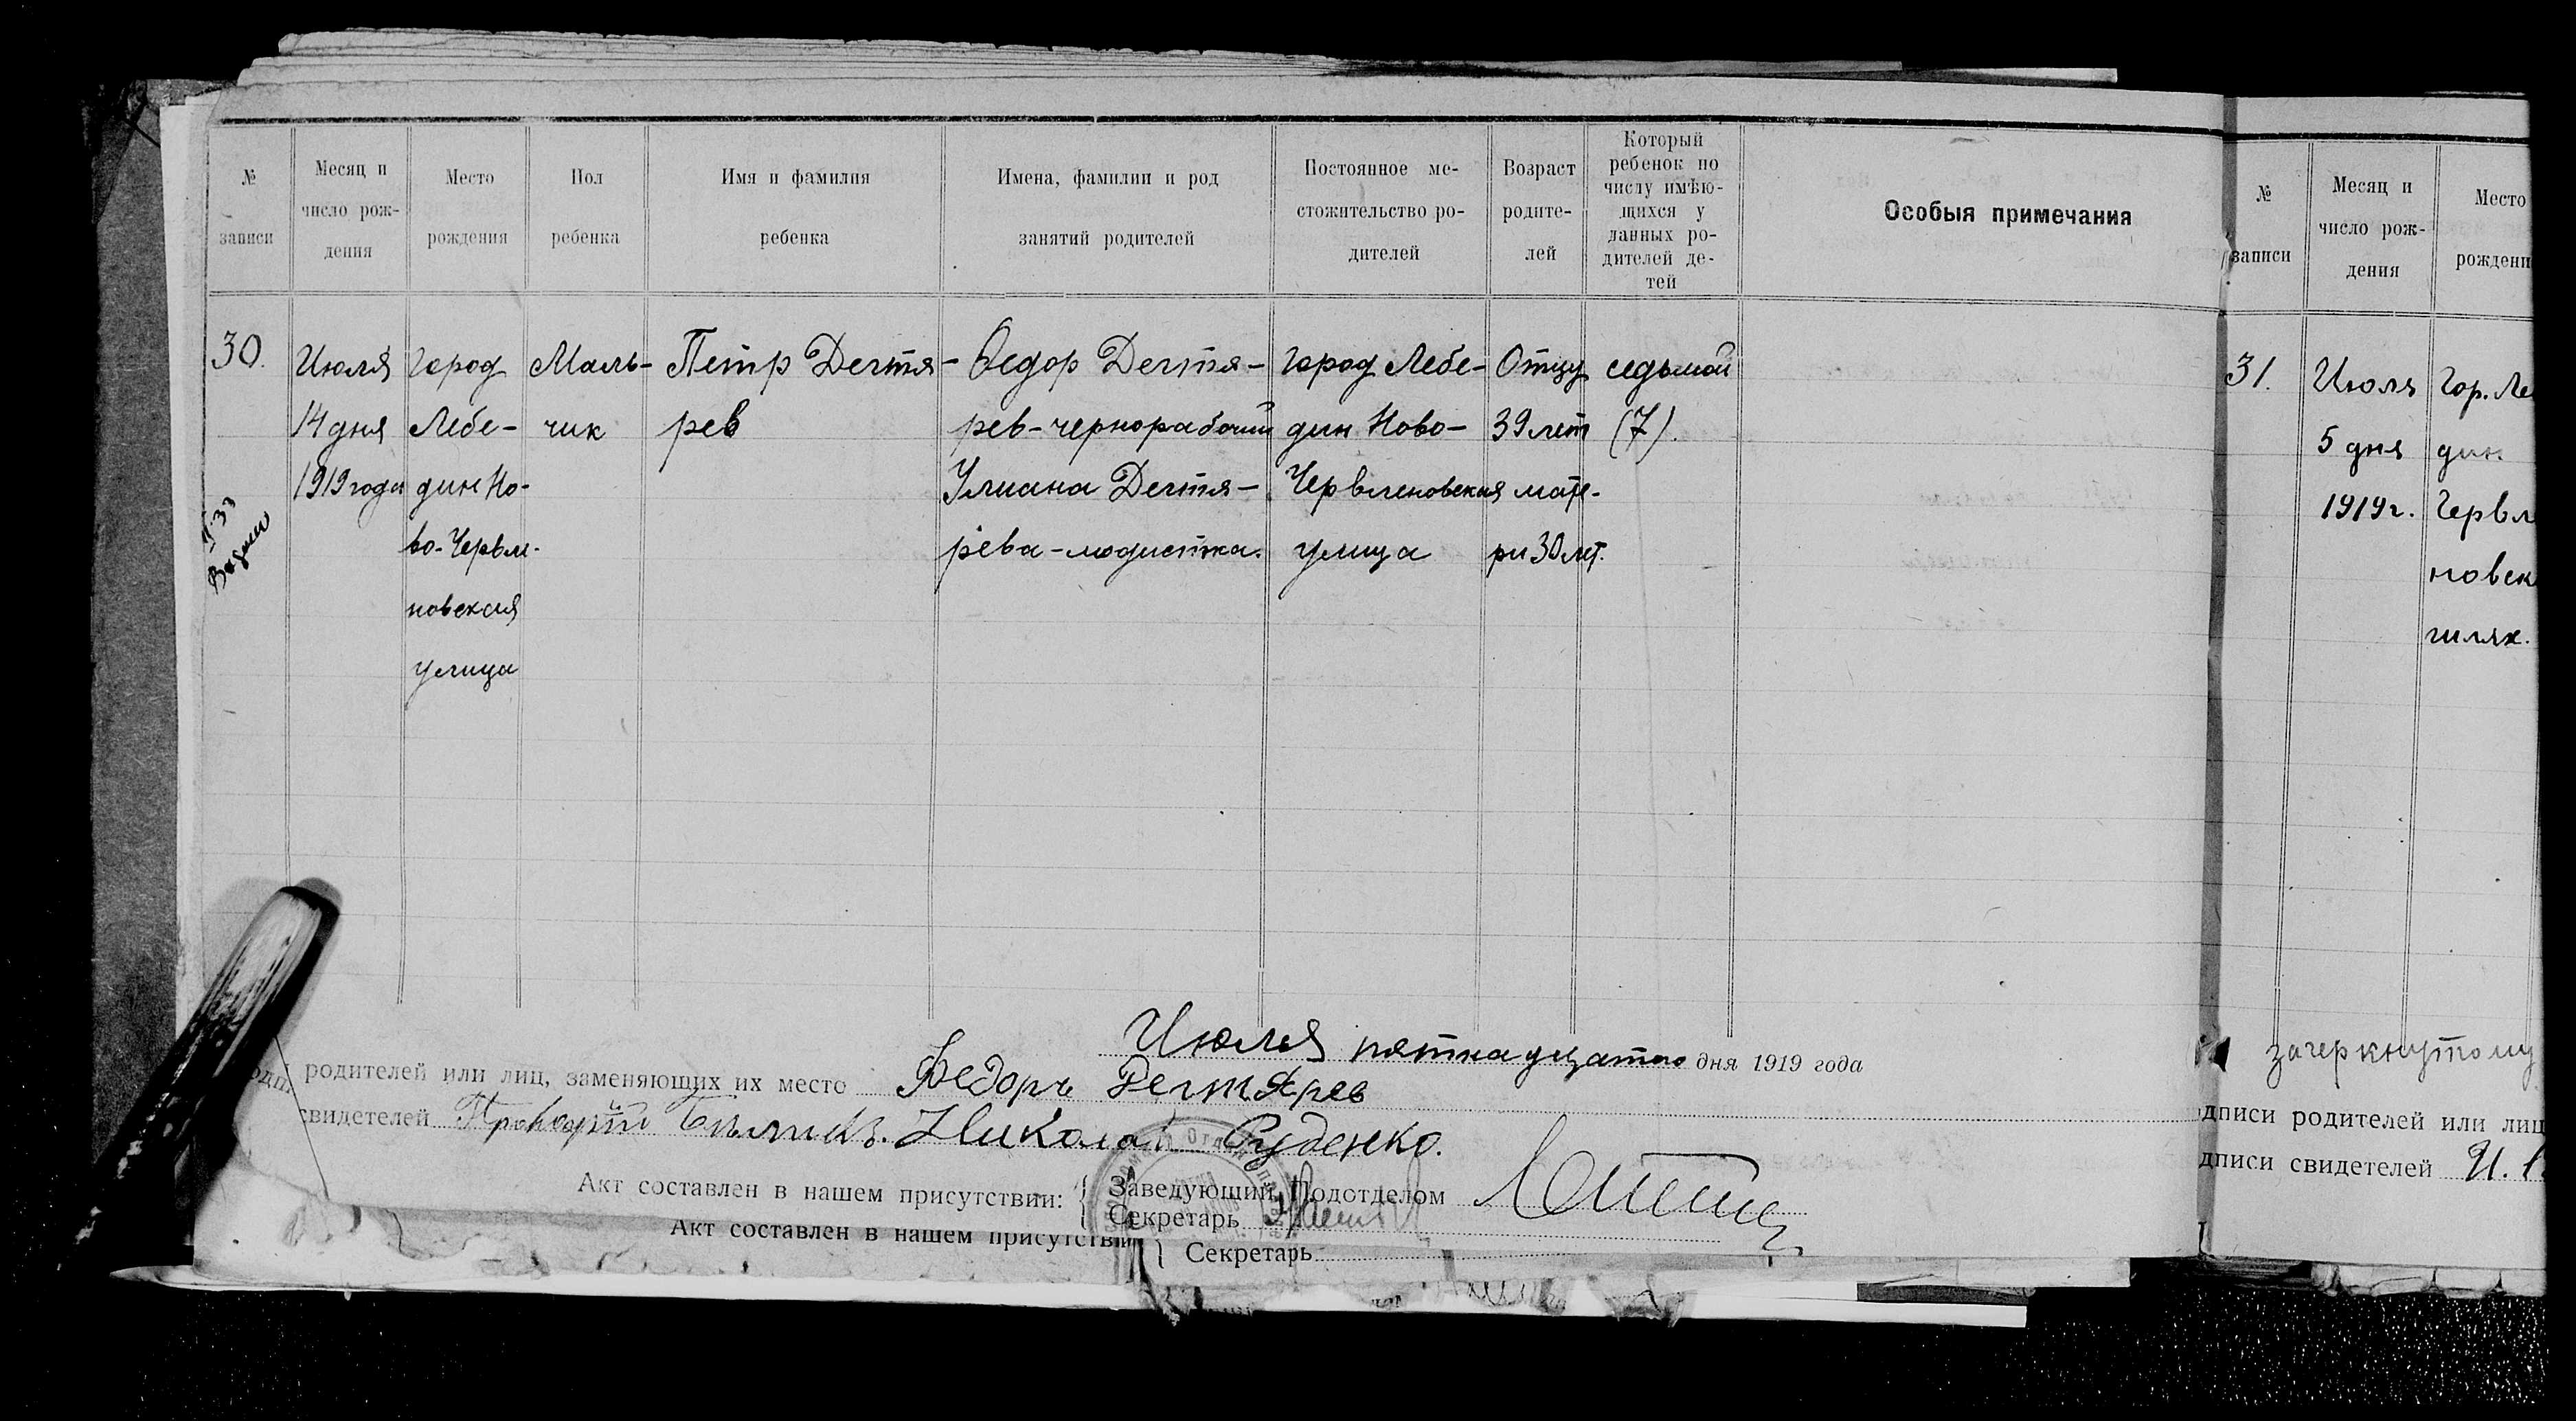 № записи
Месяц и число рож-дения
Место рождения
Пол ребенка
Имя и фамилия ребенка
Имена, фамилии и род занятий родителей
Постоянное ме-стожительство ро-дителей
Возраст родите-лей
Который ребенок по числу имѣю-щихся у данных ро-дителей де-тей
Особыя примечания
30.
Июля
14 дня
1919 года
город
Лебе-
дин Но-
во-Червле-
новская
улица
Маль-
чик
Петр Дегтя-
рев
Федор Дегтя-
рев - чернорабочий
Улиана Дегтя-
рева - модистка.
город Лебе-
дин Ново-
Червленовская
улица
Отцу
39 лет
мате-
ри 30 лет.
седьмой
(7).
Июля пятнадцатого дня 1919 года
родителей или лиц, заменяющих их место Федоръ Дегтярев
свидетелей Николай Руденко.
Акт составлен в нашем присутствии:
Заведующий Подотделом
Секретарь
Акт составлен в нашем присутстви
Секретарь
№ записи
Месяц и число рож-дения
Место
рождени
31.
Июля
5 дня
1919 г.
Гор. Ле
дин
Червл
новск
зачеркнутому
дписи родителей или лиц
дписи свидетелей И.